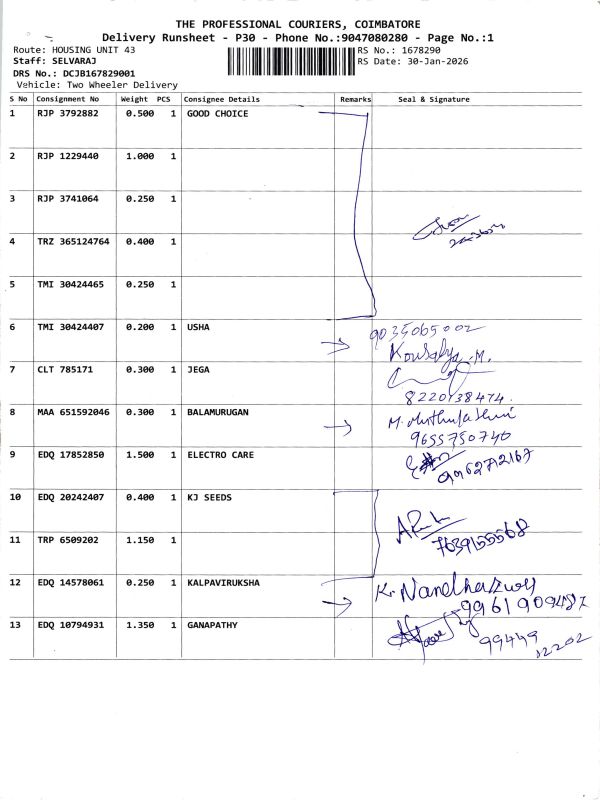 THE PROFESSIONAL COURIERS, COIMBATORE
Delivery Runsheet - P30 - Phone No.:9047080280 - Page No.:1
Route: HOUSING UNIT 43
RS No.: 1678290
Staff: SELVARAJ
RS Date: 30-Jan-2026
DRS No.: DCJB167829001
Vehicle: Two Wheeler Delivery
S No Consignment No Weight PCS Consignee Details Remarks Seal & Signature
1 RJP 3792882 0.500 1 GOOD CHOICE
2 RJP 1229440 1.000 1
3 RJP 3741064 0.250 1
4 TRZ 365124764 0.400 1
5 TMI 30424465 0.250 1
6 TMI 30424407 0.200 1 USHA
Kousalya. M.
7 CLT 785171 0.300 1 JEGA
8220138474.
8 MAA 651592046 0.300 1 BALAMURUGAN
9655750740
9 EDQ 17852850 1.500 1 ELECTRO CARE
10 EDQ 20242407 0.400 1 KJ SEEDS
11 TRP 6509202 1.150 1
7639155568
12 EDQ 14578061 0.250 1 KALPAVIRUKSHA
13 EDQ 10794931 1.350 1 GANAPATHY
99449